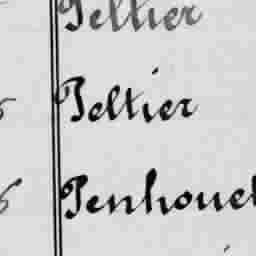 Pellier
Peltier
Penhouet